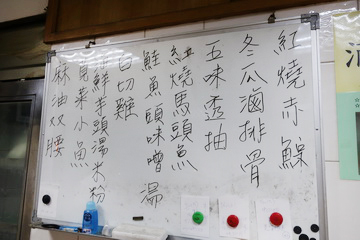 紅燒赤鯮
冬瓜滷排骨
五味透抽
紅燒馬頭魚
鮭魚頭味噌湯
白切雞
鮮芋頭湯米粉
莧菜小魚
麻油双腰